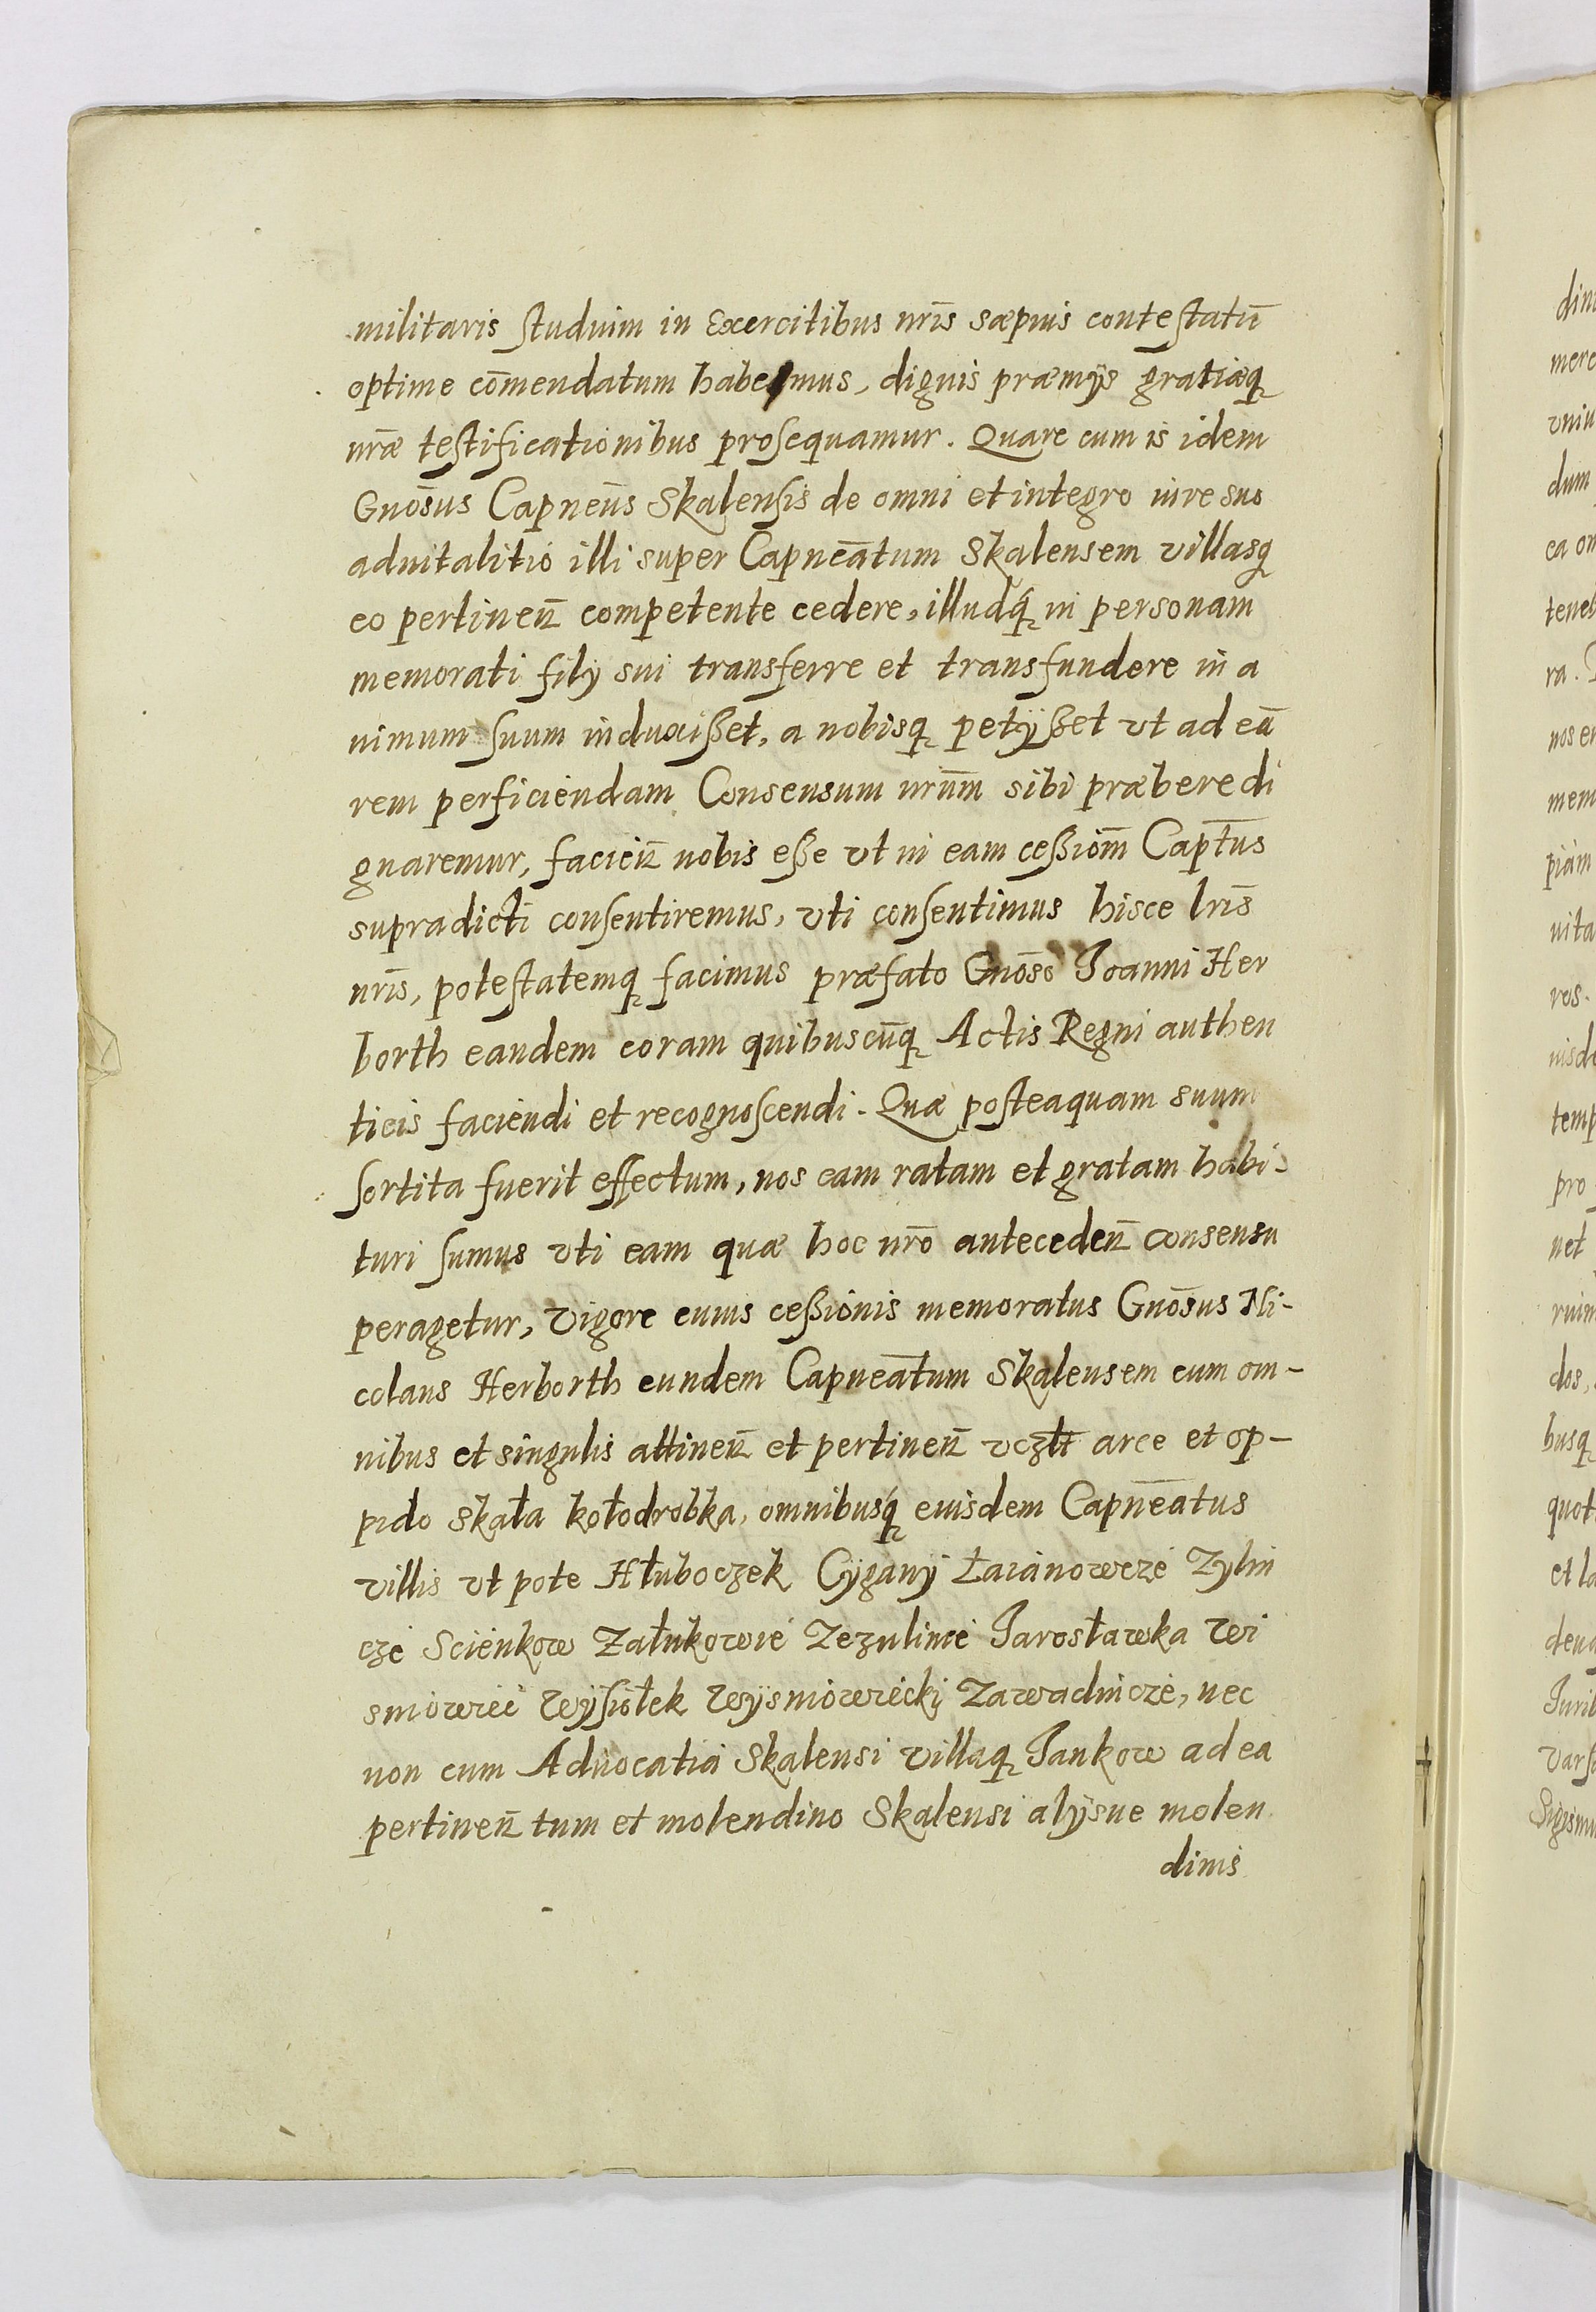 militaris studium in Exercitibus nr̄is sæpius contestatū
optime cōmendatum habemus, dignis præmÿs gratiæq
nr̄æ testificationibus prosequamur. Quare cum is idem
Gnōsus Capneūs Skalensis de omni et integro iure suo
aduitalitio illi super Capneātum Skalensem villasq
eo pertineñ competente cedere, illudq in personam
memorati filÿ sui transferre et transfundere in a
nimum suum induxißet, a nobisq petÿßet vt ad eā
rem perficiendam Consensum nrūm sibi præbere di
gnaremur, facień nobis eße vt in eam ceßiōm Capt̄us
supradicti consentiremus, vti consentimus hisce lr̄is
nr̄is, potestatemq facimus præfato Gnōso Joanni Her
borth eandem coram quibuscūq Actis Regni authen
ticis faciendi et recognoscendi. Quæ posteaquam suum
sortita fuerit effectum, nos eam ratam et gratam habi-
turi sumus vti eam quæ hoc nr̄o antecedeñ consensu
peragetur, Vigore cuius ceßionis memoratus Gnōsus Ni-
colaus Herborth eundem Capneātum Skalensem cum om-
nibus et singulis attineñ et pertineñ vczłt arce et op-
pido Skała kołodrobka, omnibusq eiusdem Capnēatus
villis vt pote Hłuboczek Cÿganÿ Łaianowcze Zylin
cze Scienkow Załukowie Zezulince Jarosławka Wi
smowiec Wÿsiołek Wÿsmowieckÿ Zawadincze, nec
non cum Aduocatia Skalensi villaq Jankow ad ea
pertineñ tum et molendino Skalensi alÿsue molen
dinis
dim
mere
vniu
dum
ca om
teneb
ra.
nos en
mem
piam
uita
ros.
nisd
temp
pro
net
ruin
dos,
busq
quot
et la
Jurib
Varsa
Sigismu